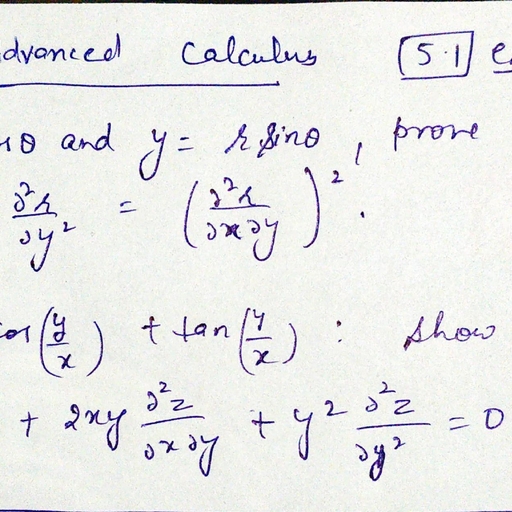 advanced Calculus 5.1
θ and y = r sinθ, prove
∂²r/∂y² = (∂²r/∂x∂y)².
cos(y/x) + tan(y/x) : show
+ 2xy ∂²z/∂x∂y + y² ∂²z/∂y² = 0